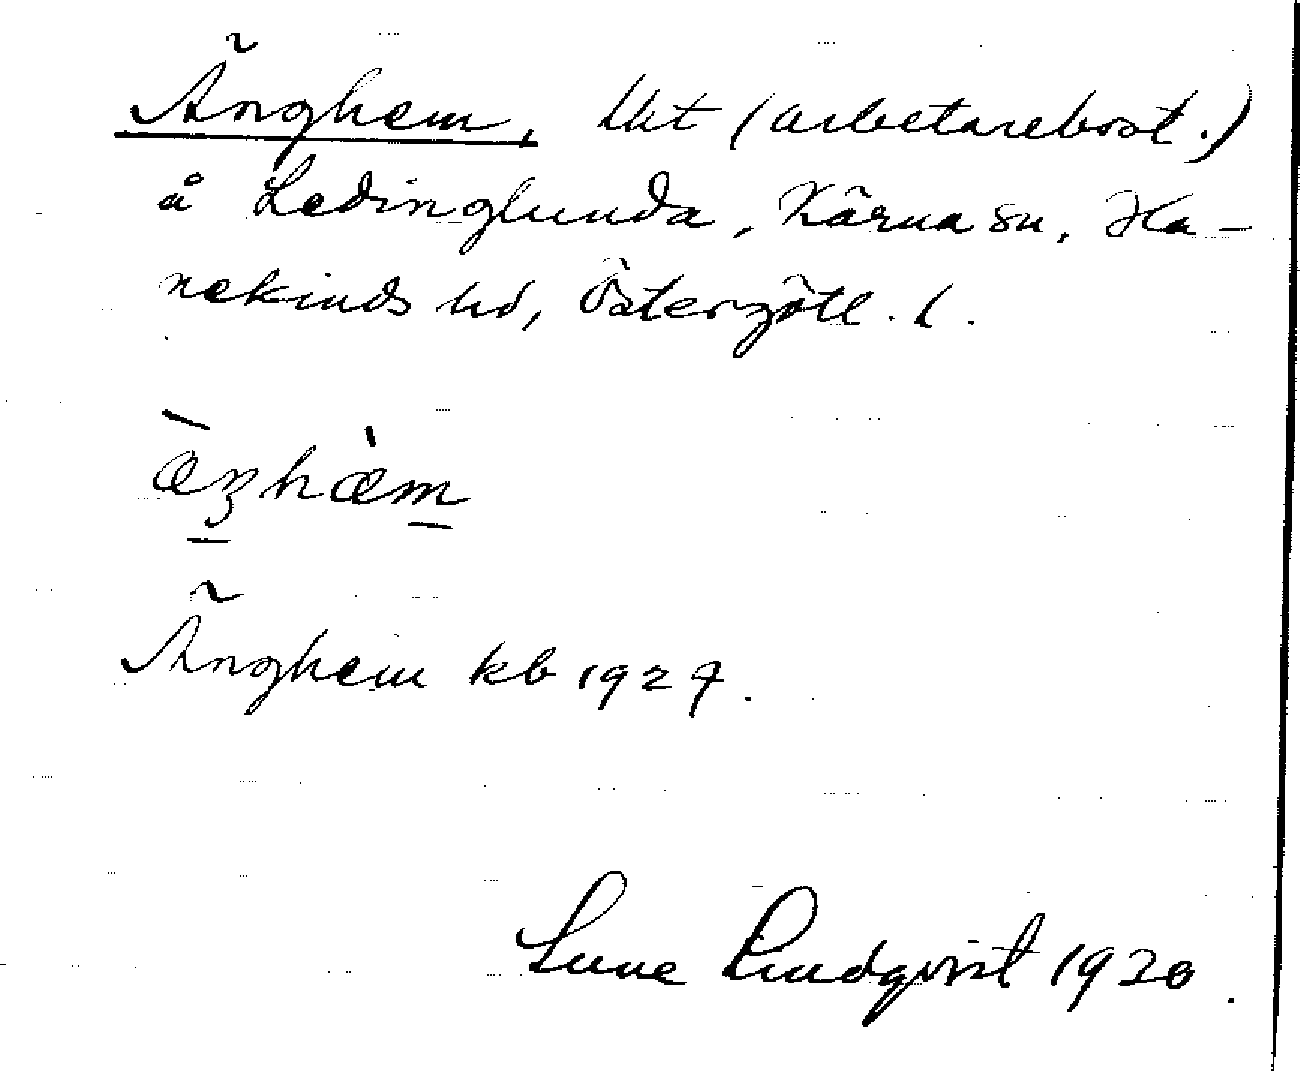 Änghem, lht (arbetarebost.)
å Ledinglunda, Kärna sn, Ha-
nekinds hd, Östergötl. l.
æŋhæm
Änghem kb 1927.
Sune Lindqvist 1920.